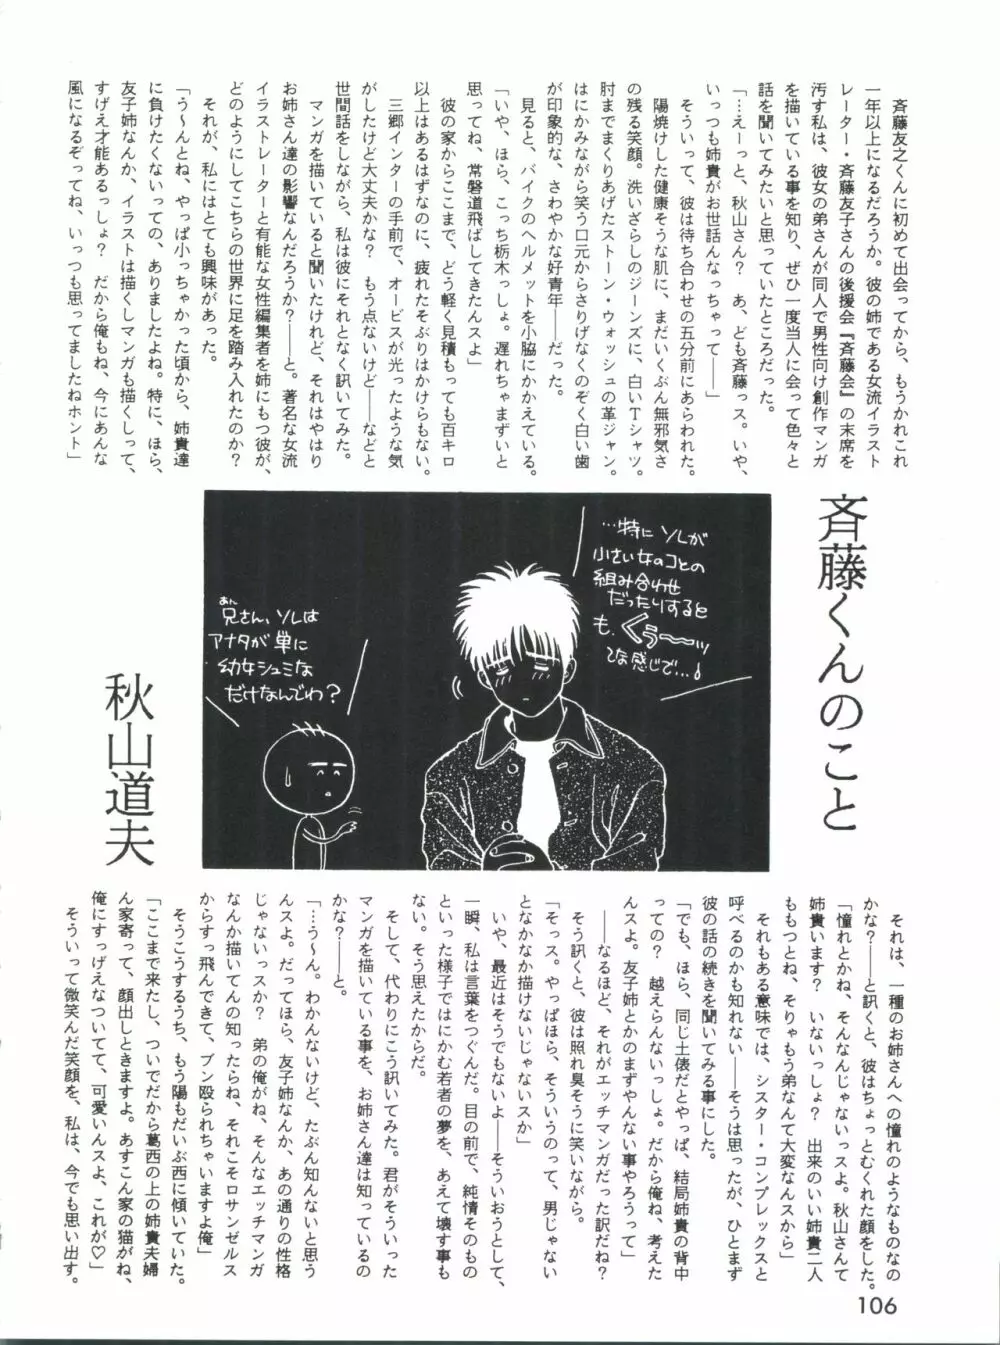 斉藤くんのこと
秋山道夫
　斉藤友之くんに初めて出会ってから、もうかれこれ
一年以上になるだろうか。彼の姉である女流イラスト
レーター・斉藤友子さんの後援会『斉藤会』の末席を
汚す私は、彼女の弟さんが同人で男性向け創作マンガ
を描いている事を知り、ぜひ一度当人に会って色々と
話を聞いてみたいと思っていたところだった。
「…えーっと、秋山さん？　あ、ども斉藤っス。いや、
いっつも姉貴がお世話んなっちゃって――」
　そういって、彼は待ち合わせの五分前にあらわれた。
　陽焼けした健康そうな肌に、まだいくぶん無邪気さ
の残る笑顔。洗いざらしのジーンズに、白いＴシャツ。
肘までまくりあげたストーン・ウォッシュの革ジャン。
はにかみながら笑う口元からさりげなくのぞく白い歯
が印象的な、さわやかな好青年――だった。
　見ると、バイクのヘルメットを小脇にかかえている。
「いや、ほら、こっち栃木っしょ。遅れちゃまずいと
思ってね、常磐道飛ばしてきたんスよ」
　彼の家からここまで、どう軽く見積もっても百キロ
以上はあるはずなのに、疲れたそぶりはかけらもない。
　三郷インターの手前で、オービスが光ったような気
がしたけど大丈夫かな？　もう点ないけど――などと
世間話をしながら、私は彼にそれとなく訊いてみた。
　マンガを描いていると聞いたけれど、それはやはり
お姉さん達の影響なんだろうか？――と。著名な女流
イラストレーターと有能な女性編集者を姉にもつ彼が、
どのようにしてこちらの世界に足を踏み入れたのか？
　それが、私にはとても興味があった。
「う～んとね、やっぱ小っちゃかった頃から、姉貴達
に負けたくないっての、ありましたよね。特に、ほら、
友子姉なんか、イラストは描くしマンガも描くしって、
すげえ才能あるっしょ？　だから俺もね、今にあんな
風になるぞってね、いっつも思ってましたねホント」
…特に ソレが
小さい女のコとの
組み合わせ
だったりすると
も、くぅーッ
てな感じで…！
あん
兄さん、ソレは
アナタが 単に
幼女シュミな
だけなんでわ？
　それは、一種のお姉さんへの憧れのようなものなの
かな？――と訊くと、彼はちょっとむくれた顔をした。
「憧れとかね、そんなんじゃないっスよ。秋山さんて
姉貴います？　いないっしょ？　出来のいい姉貴二人
ももつとね、そりゃもう弟なんて大変なんスから」
　それもある意味では、シスター・コンプレックスと
呼べるのかも知れない――そうは思ったが、ひとまず
彼の話の続きを聞いてみる事にした。
「でも、ほら、同じ土俵だとやっぱ、結局姉貴の背中
っての？　越えらんないっしょ。だから俺ね、考えた
んスよ。友子姉とかのまずやんない事やろうって」
――なるほど、それがエッチマンガだった訳だね？
　そう訊くと、彼は照れ臭そうに笑いながら。
「そっス。やっぱほら、そういうのって、男じゃない
となかなか描けないじゃないスか」
　いや、最近はそうでもないよ――そういおうとして、
一瞬、私は言葉をつぐんだ。目の前で、純情そのもの
といった様子ではにかむ若者の夢を、あえて壊す事も
ない。そう思えたからだ。
　そして、代わりにこう訊いてみた。君がそういった
マンガを描いている事を、お姉さん達は知っているの
かな？――と。
「…う～ん。わかんないけど、たぶん知んないと思う
んスよ。だってほら、友子姉なんか、あの通りの性格
じゃないっスか？　弟の俺がね、そんなエッチマンガ
なんか描いてんの知ったらね、それこそロサンゼルス
からすっ飛んできて、ブン殴られちゃいますよ俺」
　そうこうするうち、もう陽もだいぶ西に傾いていた。
「ここまで来たし、ついでだから葛西の上の姉貴夫婦
ん家寄って、顔出しときますよ。あすこん家の猫がね、
俺にすっげえなついてて、可愛いんスよ、これが♡」
　そういって微笑んだ笑顔を、私は、今でも思い出す。
106